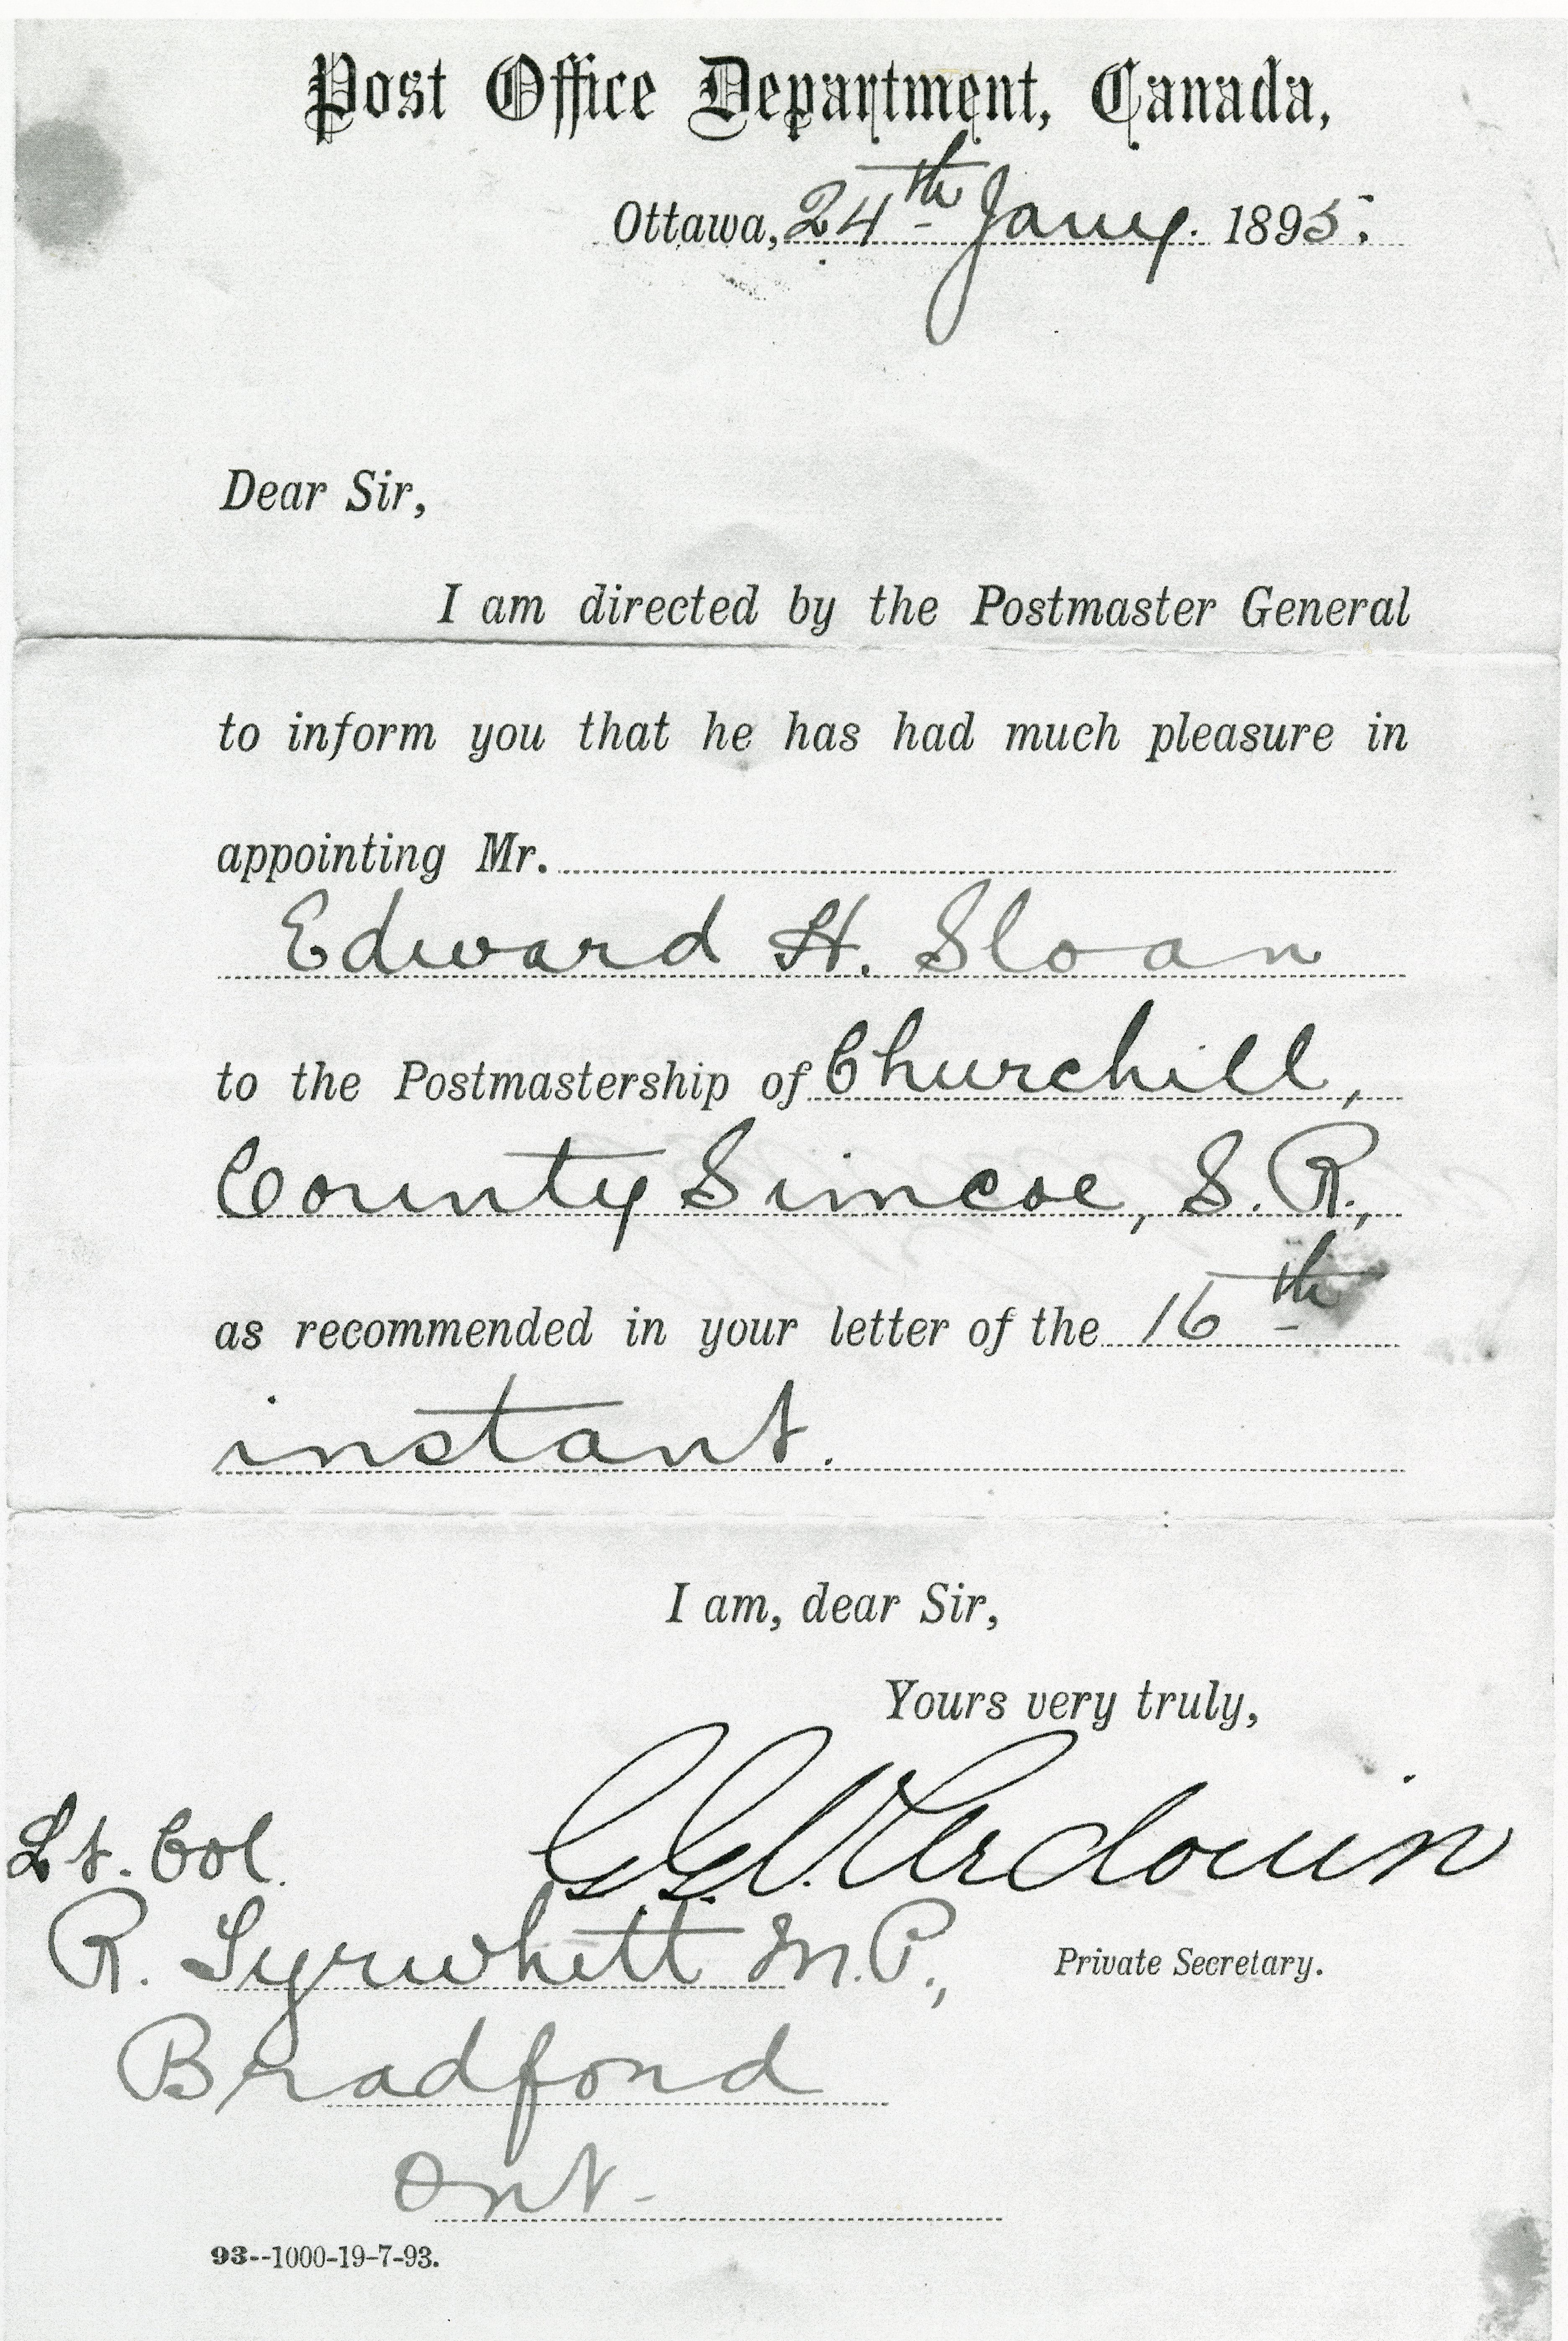 Post Office Department, Canada,
Ottawa, 24th Jany. 1895.
Dear Sir,
I am directed by the Postmaster General
to inform you that he has had much pleasure in
appointing Mr.
Edward H. Sloan
to the Postmastership of Churchill,
County Simcoe, S. R.,
as recommended in your letter of the 16th
instant.
I am, dear Sir,
Yours very truly,
Lt. Col.
R. Tyrwhitt M.P.,
Private Secretary.
Bradford
Ont-
93--1000-19-7-93.